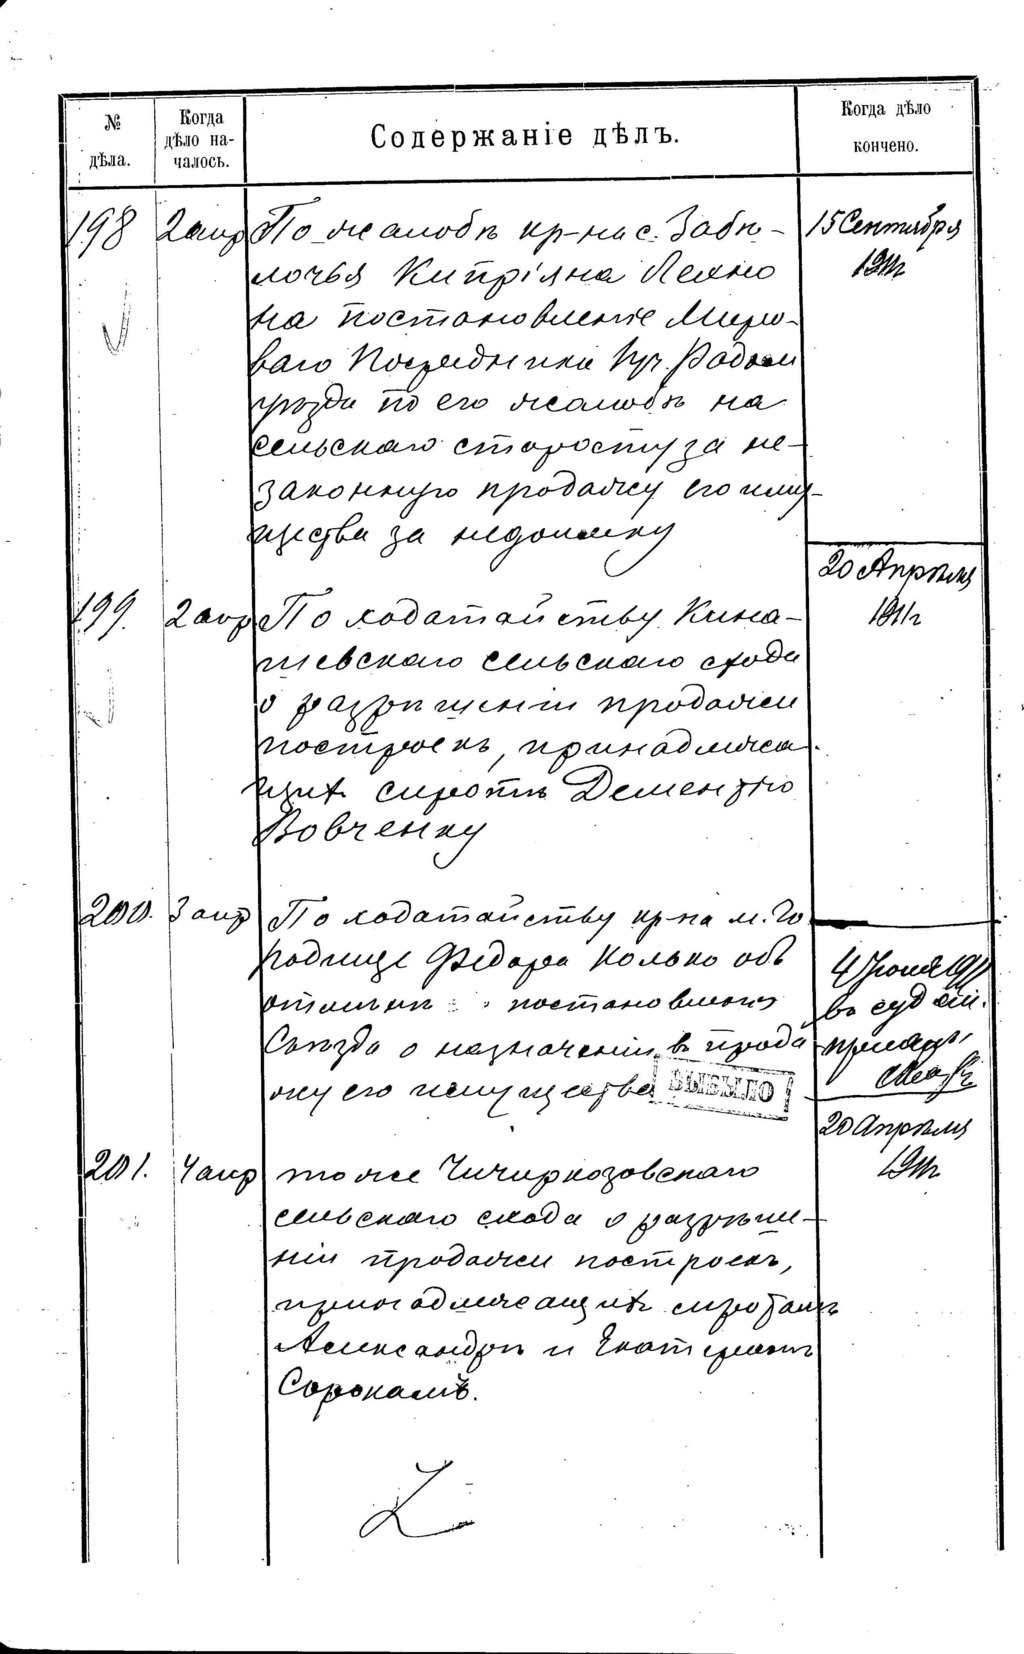 № дѣла.
Когда дѣло на-
чалось.
Содержаніе дѣлъ.
Когда дѣло
кончено.
198 2 апр По жалобѣ кр-на с. Забѣ-
лочья Кипріяна Ляхно
на постановленіе Миро-
ваго Посредника
по его жалобѣ на
сельскаго старосту за не-
законную продажу его иму-
щества за недоимку
15 Сентября
1911г
199. 2 апр По ходатайству Кина-
шевскаго сельскаго схода
о разрѣшеніи продажи
построекъ, принадлежа-
щих сиротѣ Дементію
Вовченку
20 Апрѣля
1911г
200. 3 апр По ходатайству кр-на м. Го
родище Федора Колько объ
отмѣнѣ постановленія
Съѣзда о назначеніи въ прода
жу его имущества
ВЫБЫЛО
4 Іюня 1911
въ суд
201. 4 апр тоже Чичиркозовскаго
сельскаго схода о разрѣше-
ніи продажи построекъ,
принадлежащихъ сиротамъ
Александрѣ и Екатеринѣ
Сорокамъ.
20 Апрѣля
1911г